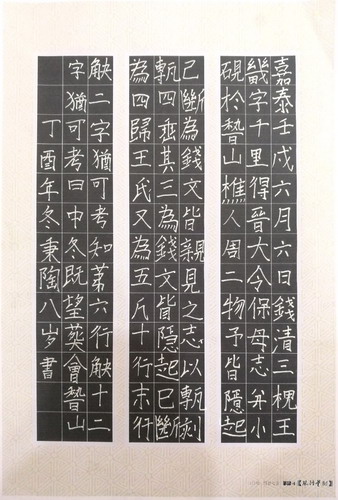 嘉泰壬戌六月六日錢清三槐王
畿字千里得晉大令保母志并小
硯於稽山樵人周二物予皆
親見之志以甎刻
甎四垂其三為錢文皆隱起已斷
為四歸王氏又為五凡十行末行
缺二字猶可考知第六行缺十二
字猶可考曰中冬既望葬會稽山
丁酉年冬秉陶八岁書